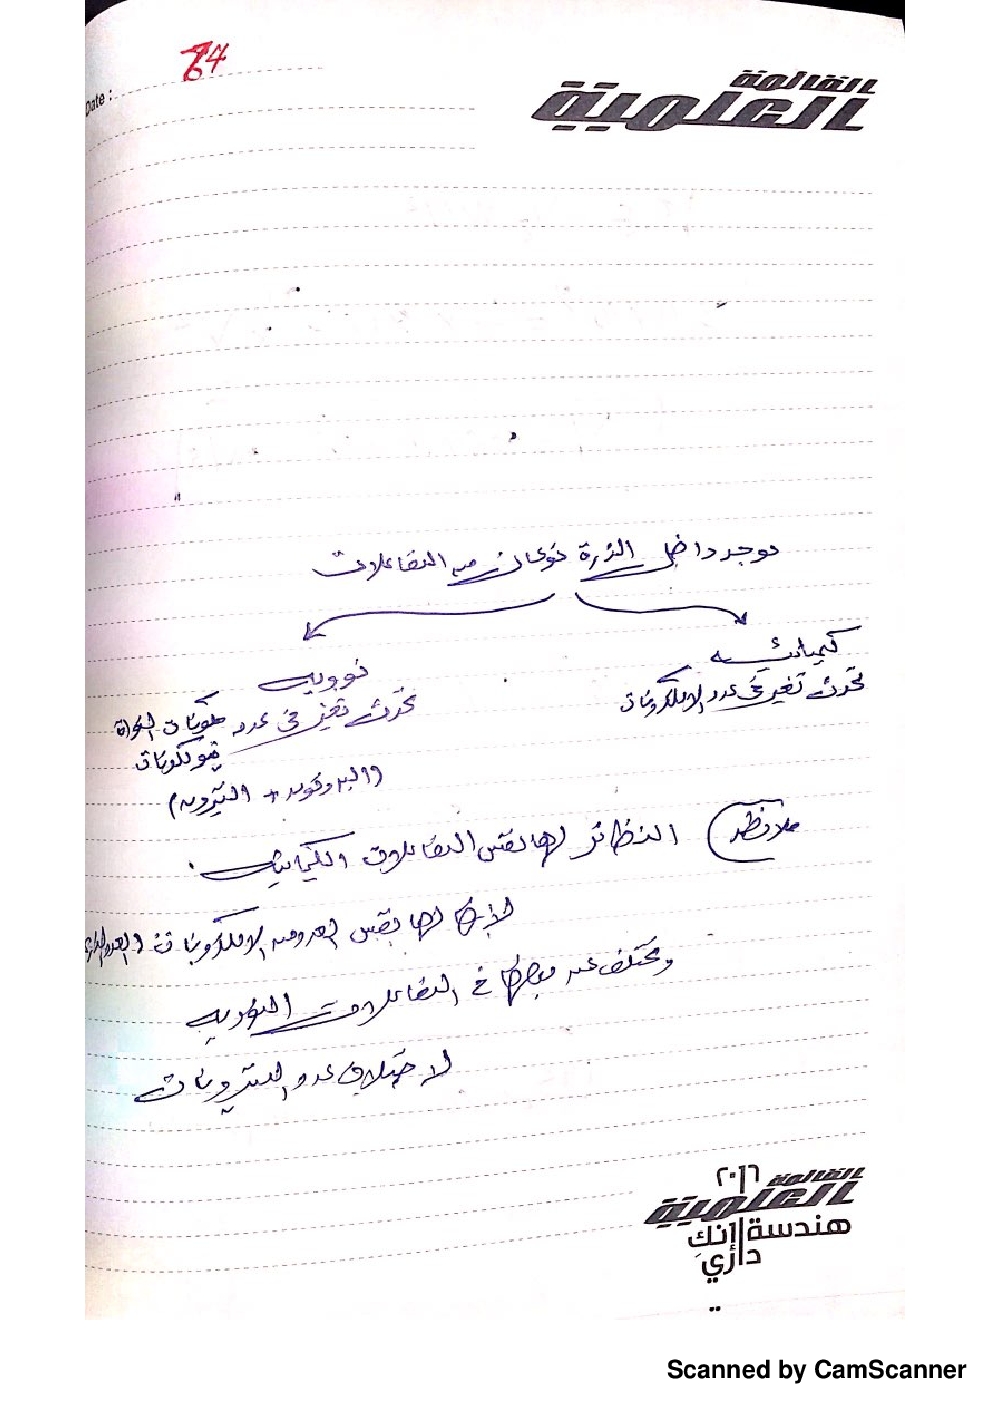 74
Date :
القائمة
العلمية
يوجد داخل الذرة نوعان من التفاعلات
كيميائيه
تحدث تغير في عدد الالكترونات
نوويه
تحدث تغير في عدد مكونات النواة
نيوكلونات
(البروتون + النيترون)
ملاحظه النظائر لها نفس التفاعلات الكيميائيه .
لانها لها نفس العدد من الالكترونات
وتختلف عن بعضها في التفاعلات النوويه
لاختلاف عدد النيترونات
القائمة ٢٠١٦
العلمية
هندسة إنكِ
داري
Scanned by CamScanner